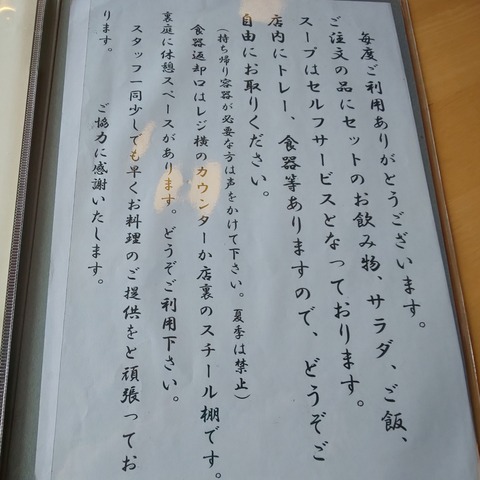 毎度ご利用ありがとうございます。
ご注文の品にセットのお飲み物、サラダ、ご飯、
スープはセルフサービスとなっております。
店内にトレー、食器等ありますので、どうぞご
自由にお取りください。
(持ち帰り容器が必要な方は声をかけて下さい。夏季は禁止)
食器返却口はレジ横のカウンターか店裏のスチール棚です。
裏庭に休憩スペースがあります。どうぞご利用下さい。
スタッフ一同少しでも早くお料理のご提供をと頑張ってお
ります。
ご協力に感謝いたします。